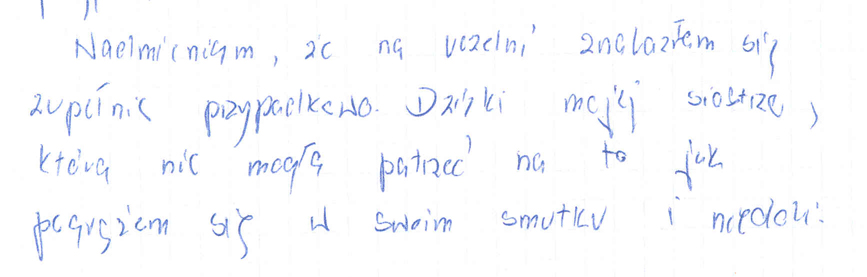 Nadmieniam, że na uczelni znalazłem się
zupełnie przypadkowo. Dzięki mojej siostrze,
która nie mogła patrzeć na to jak
pogrążem się w swoim smutku i niedoli.